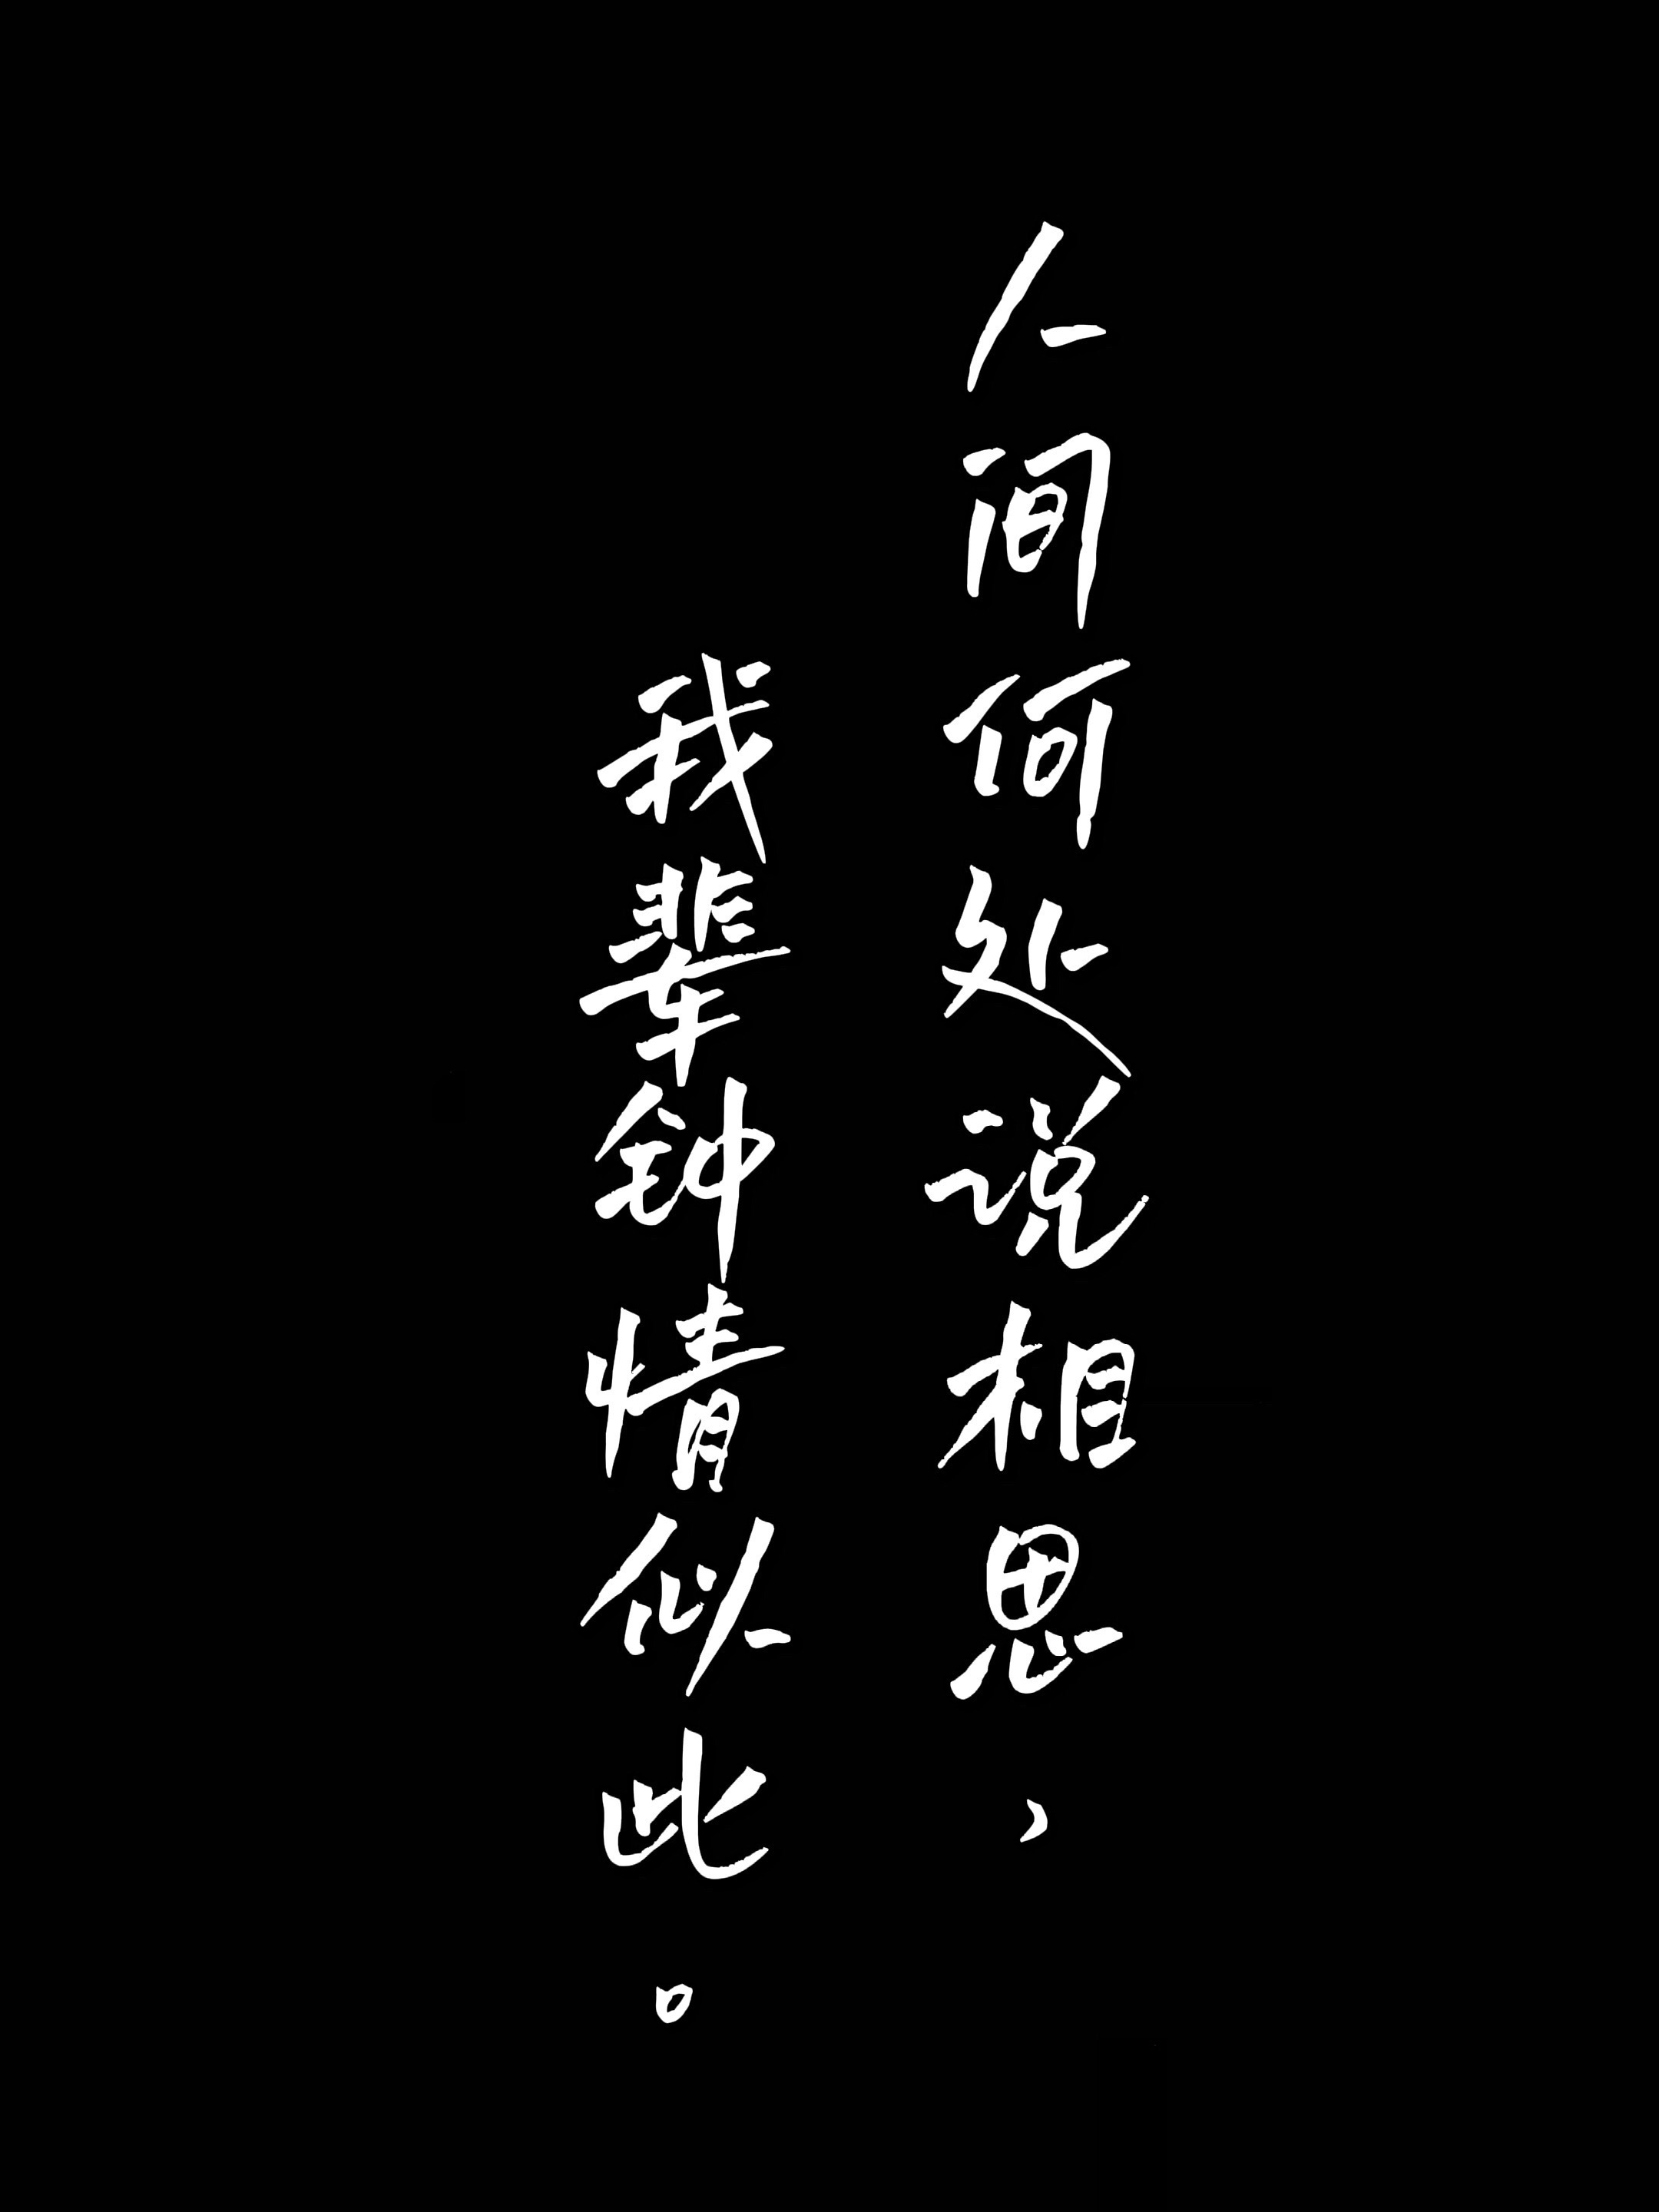 人间何处说相思，
我辈钟情似此。